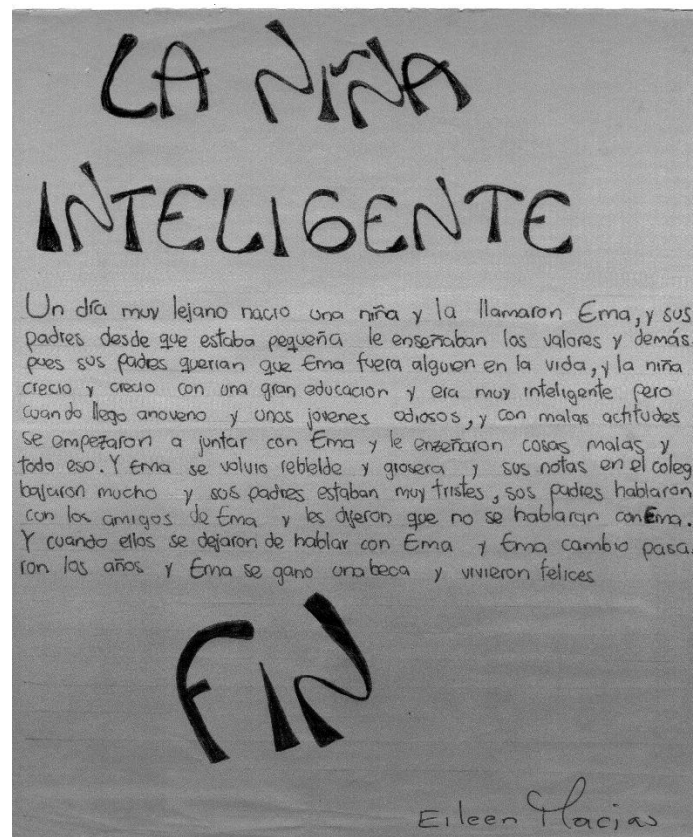 LA NIÑA
INTELIGENTE
Un día muy lejano nacio una niña y la llamaron Ema, y sus
padres desde que estaba pequeña le enseñaban los valores y demás
pues sus padres querian que Ema fuera alguien en la vida, y la niña
crecio y crecio con una gran educacion y era muy inteligente pero
cuando llego anoveno y unos jovenes odiosos, y con malas actitudes
se empezaron a juntar con Ema y le enzeñaron cosas malas y
todo eso. Y Ema se volvio reblelde y grosera y sus notas en el coleg
bajaron mucho y sus padres estaban muy tristes, sus padres hablaron
con los amigos de Ema y les dijeron que no se hablaran conEma.
Y cuando ellos se dejaron de hablar con Ema y Ema cambio pasa.
ron los años y Ema se gano una beca y vivieron felices
FIN
Eileen Macias